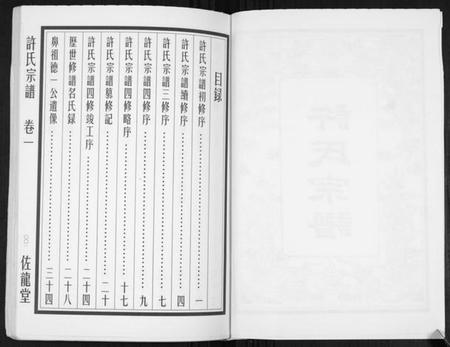 目录
許氏宗譜初修序 一
許氏宗譜續修序 四
許氏宗譜三修序 七
許氏宗譜四修序 九
許氏宗譜四修略序 十七
許氏宗譜募修記 二十
許氏宗譜四修竣工序 二十四
歷世修譜名氏録 二十八
鼻祖德一公遺像 三十四
許氏宗譜 卷一
佐龍堂
許氏宗譜